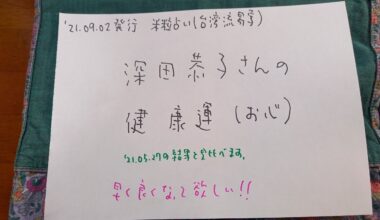 '21.09.02発行 米粒占い(台湾流易学)
深田恭子さんの
健康運(お心)
'21.05.27の結果と全比べます。
早く良くなって欲しい!!